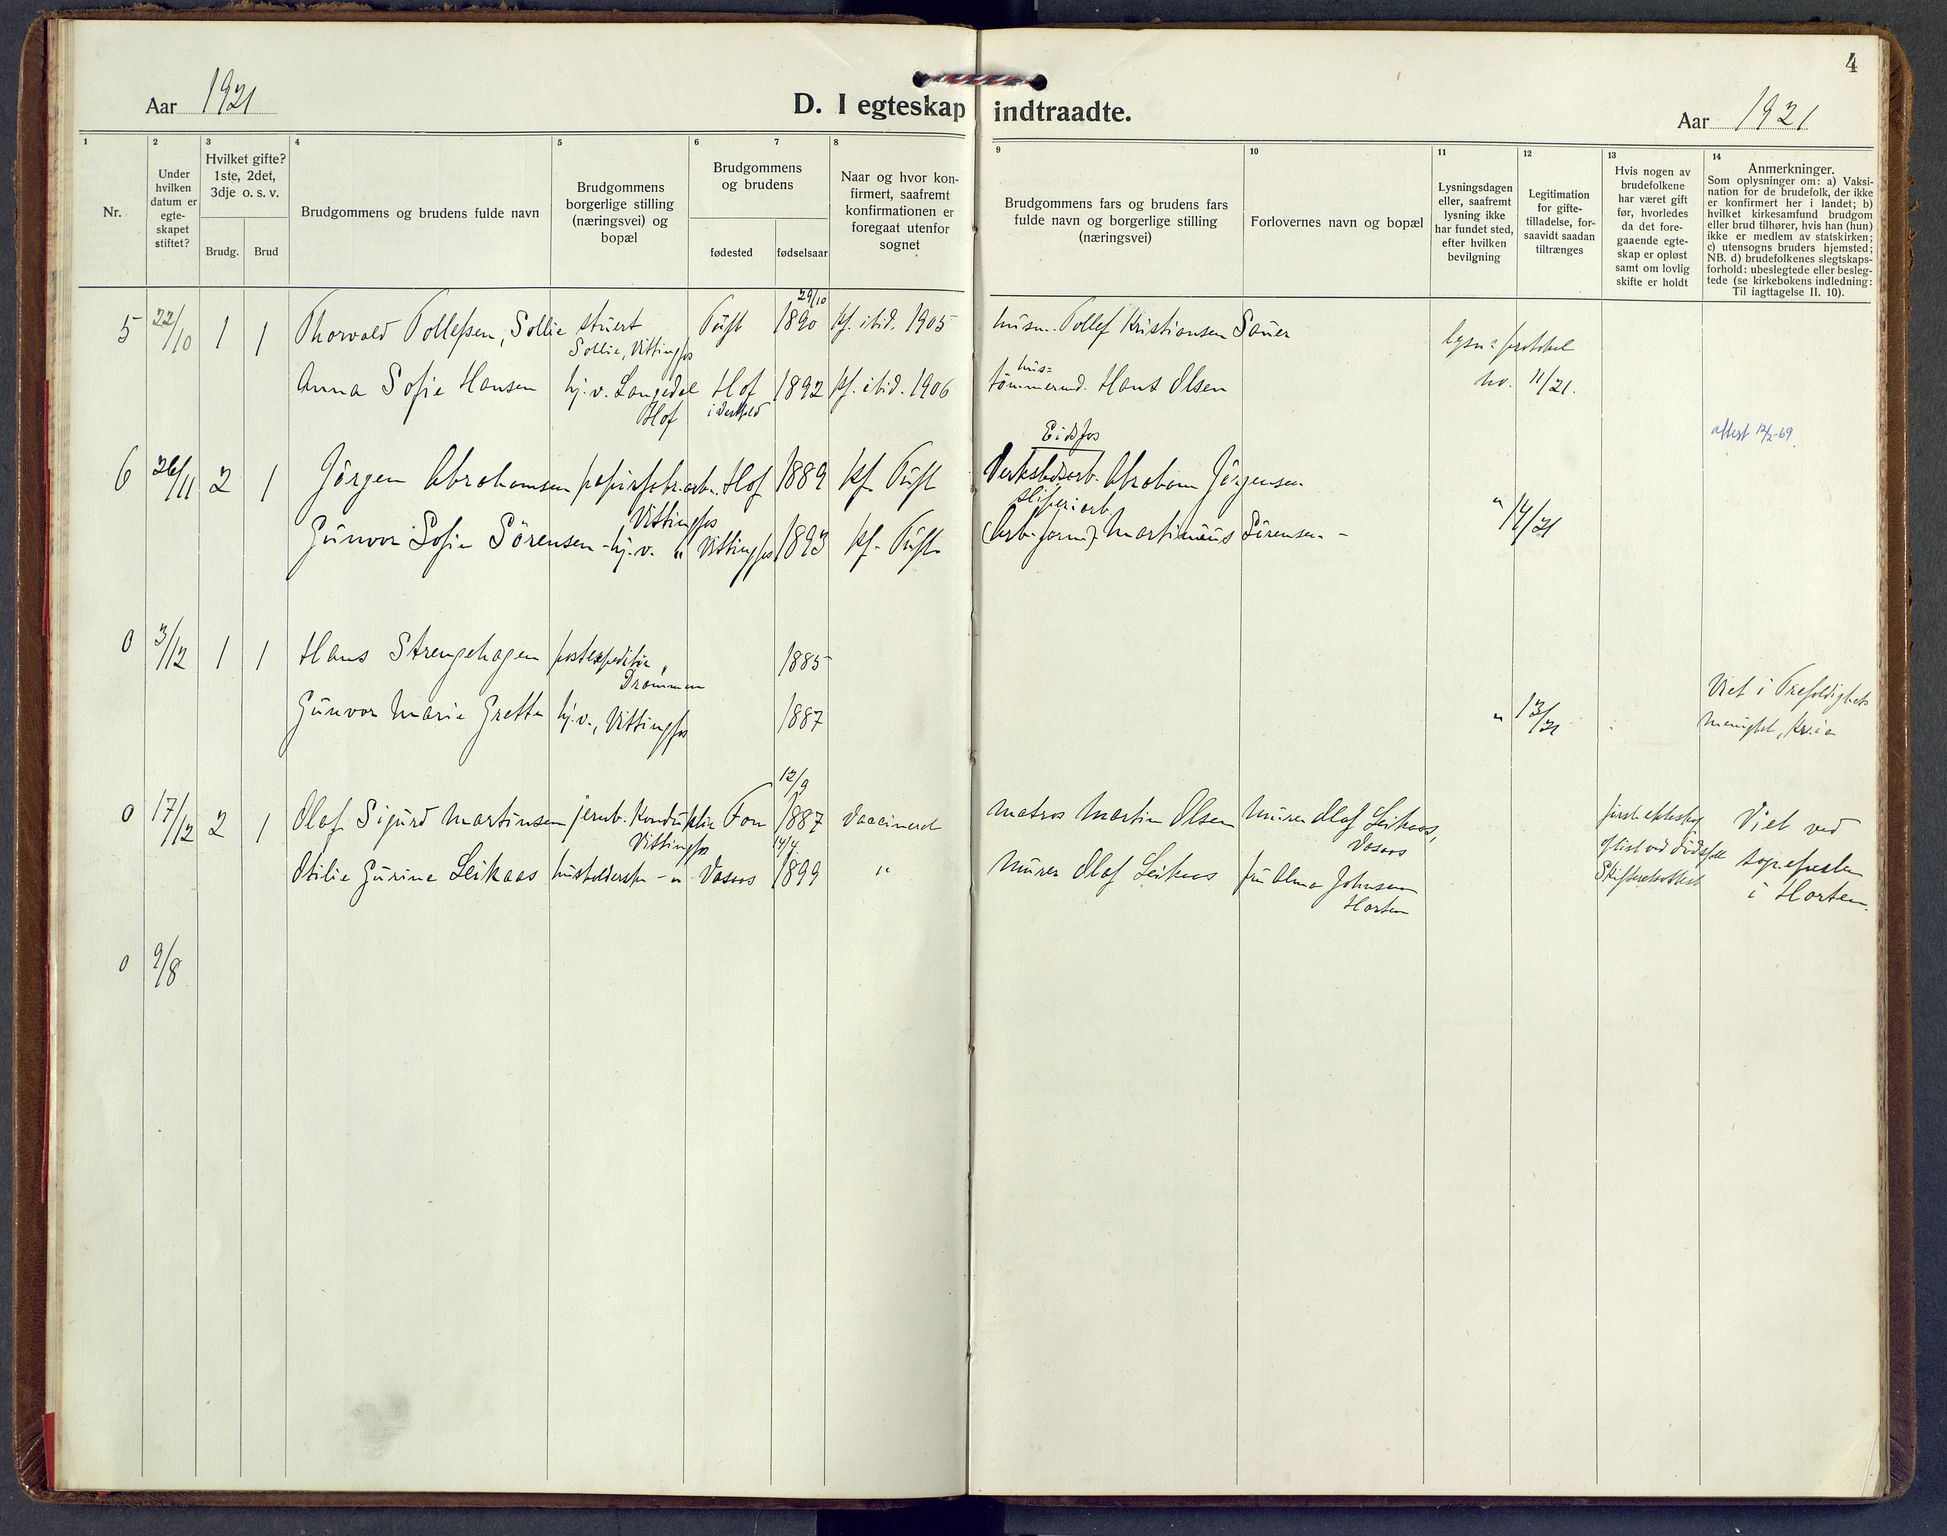 4
Aar 1921
D. I egteskap indtraadte.
Aar 1921
1
2
3
4
5
6
7
8
9
10
11
12
13
14
Nr.
Under
hvilken
datum er
egte-
skapet
stiftet?
Hvilket gifte?
1ste, 2det,
3dje o. s. v.
Brudg.
Brud
Brudgommens og brudens fulde navn
Brudgommens
borgerlige stilling
(næringsvei) og
bopæl
Brudgommens
og brudens
fødested
fødselsaar
Naar og hvor kon-
firmert, saafremt
konfirmationen er
foregaat utenfor
sognet
Brudgommens fars og brudens fars
fulde navn og borgerlige stilling
(næringsvei)
Forlovernes navn og bopæl
Lysningsdagen
eller, saafremt
lysning ikke
har fundet sted,
efter hvilken
bevilgning
Legitimation
for gifte-
tilladelse, for-
saavidt saadan
tiltrænges
Hvis nogen av
brudefolkene
har været gift
før, hvorledes
da det fore-
gaaende egte-
skap er opløst
samt om lovlig
skifte er holdt
Anmerkninger.
Som oplysninger om: a) Vaksi-
nation for de brudefolk, der ikke
er konfirmert her i landet; b)
hvilket kirkesamfund brudgom
eller brud tilhører, hvis han (hun)
ikke er medlem av statskirken;
c) utensogns bruders hjemsted;
NB. d) brudefolkenes slegtskaps-
forhold: ubeslegtede eller besleg-
tede (se kirkebokens indledning:
Til iagttagelse II. 10).
29/10
5 22/10 1 1 Thorvald Tollefsen, Sollie stuert Tuft 1890 kf. i tid. 1905 husm. Tollef Kristiansen Sauer
Sollie, Vittingfos
lysn. protokol
hus-
Anna Sofie Hansen hj. v. Langedal Hof 1892 kf. i tid. 1906 tømmermd. Hans Olsen no. 11/21.
Hof i Vestfold
Eidsfos
attest 12/2-69.
6 26/11 2 1 Jørgen Abrahamsen papirfabr.arb. Hof 1889 kf. Tuft Verkstedsarb. Abraham Jørgensen
Vittingfos
sliperiarb.
" 14/21
Gunvor Sofie Sørensen - hj. v. " Vittingfos 1893 kf. Tuft (Arb. form) Martinius Sørensen -
0 3/12 1 1 Hans Strengehagen postexpeditør, 1885
Drammen
Gunvor Marie Grette hj. v., Vittingfos 1887 " 13/21
Viet i Trefoldighets
menighet, Kr.ia
12/9
0 17/12 2 1 Olaf Sigurd Martinsen jernb. Konduktør Fon 1887 Vaccineret matros Martin Olsen Murer Olaf Leikaas,
Vittingfos
Vasaas
første ekteskap
opløst ved dødsfall
Skifteretsattest
Viet ved
sognepresten
i Horten.
14/4
Otilie Gurine Leikaas husholderske - " Vasaas 1899 " Murer Olaf Leikaas fru Alma Johnsen
Horten
0 9/8